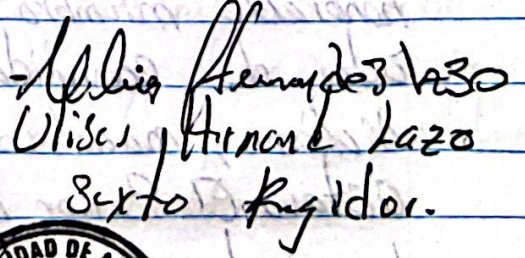 Ulises Hernandez Lazo
Ulises Hernand Lazo
Sexto Regidor.
DAD DE